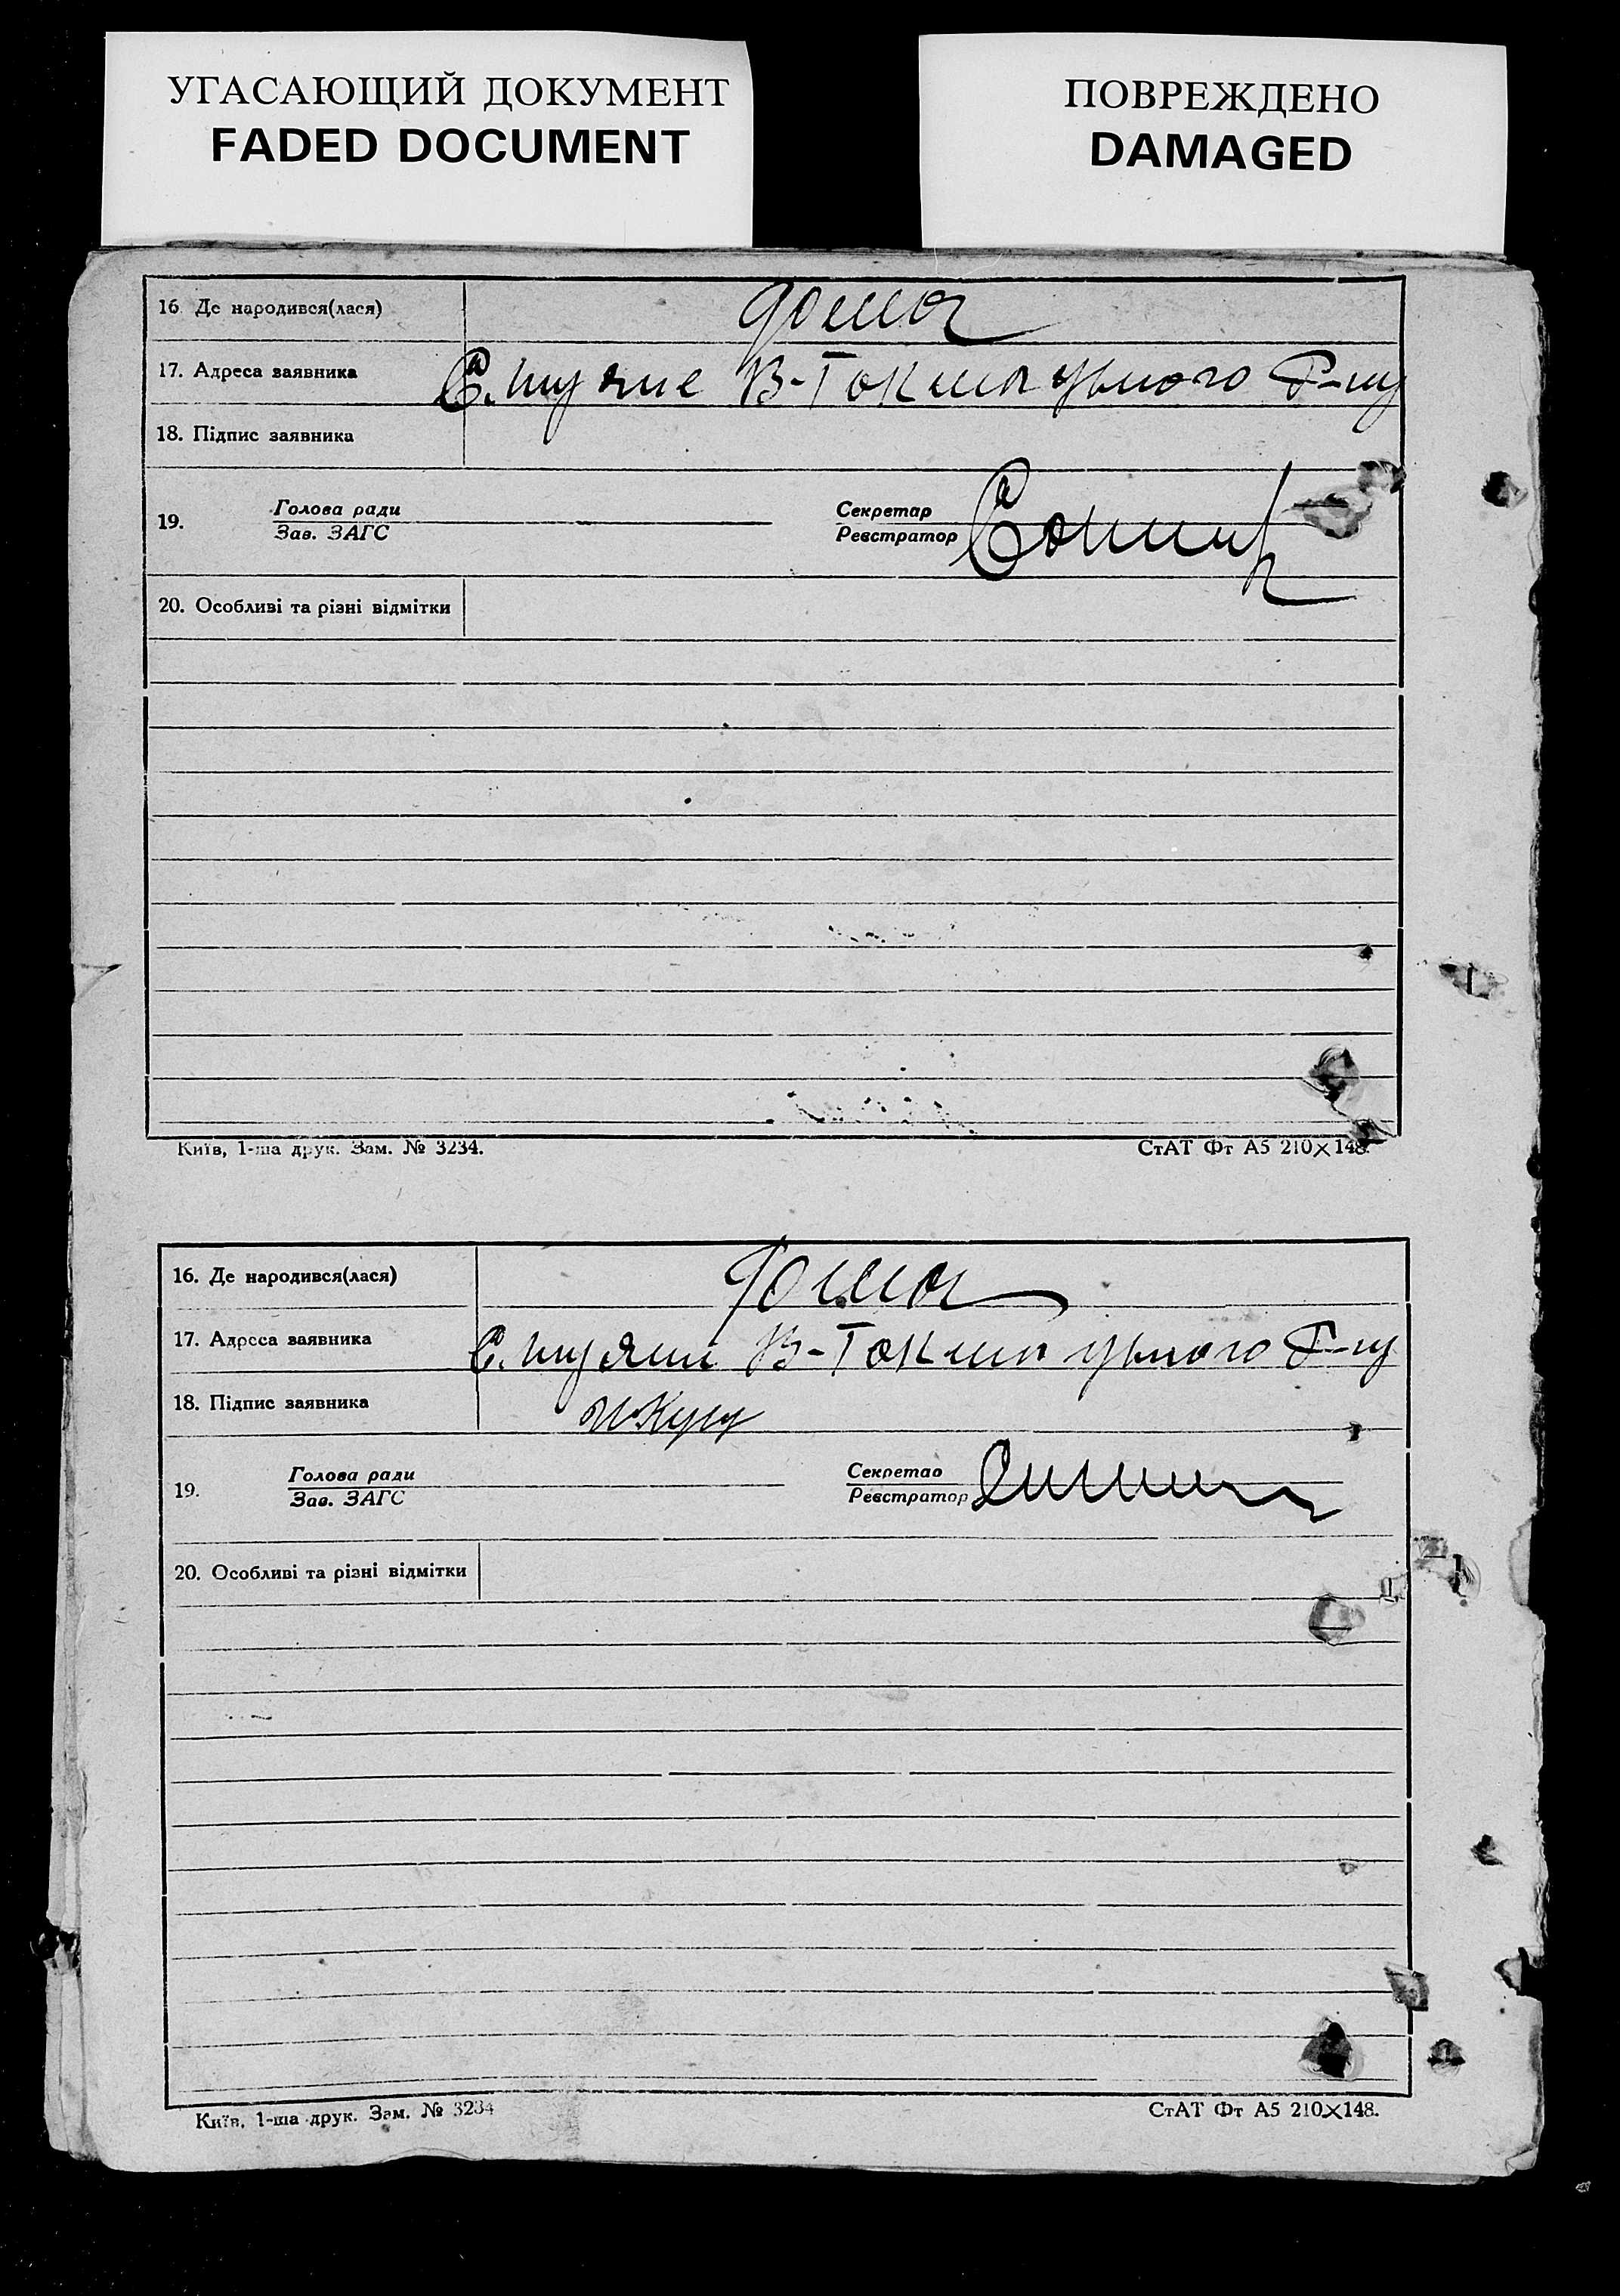 УГАСАЮЩИЙ ДОКУМЕНТ
FADED DOCUMENT
ПОВРЕЖДЕНО
DAMAGED
16 Де народився(лася) дома
17. Адреса заявника С. В-Токмацького Р-ну
18. Підпис заявника
19. Голова ради Секретар
Зав. ЗАГС Реєстратор
20. Особливі та різні відмітки
Київ, 1-ша друк. Зам. № 3234. СтАТ Фт А5 210×148.
16. Де народився(лася) дома
17. Адреса заявника С. В-Токмацького Р-ну
18. Підпис заявника
19. Голова ради Секретар
Зав. ЗАГС Реєстратор
20. Особливі та різні відмітки
Київ, 1-ша друк. Зам. № 3234 СтАТ Фт А5 210×148.